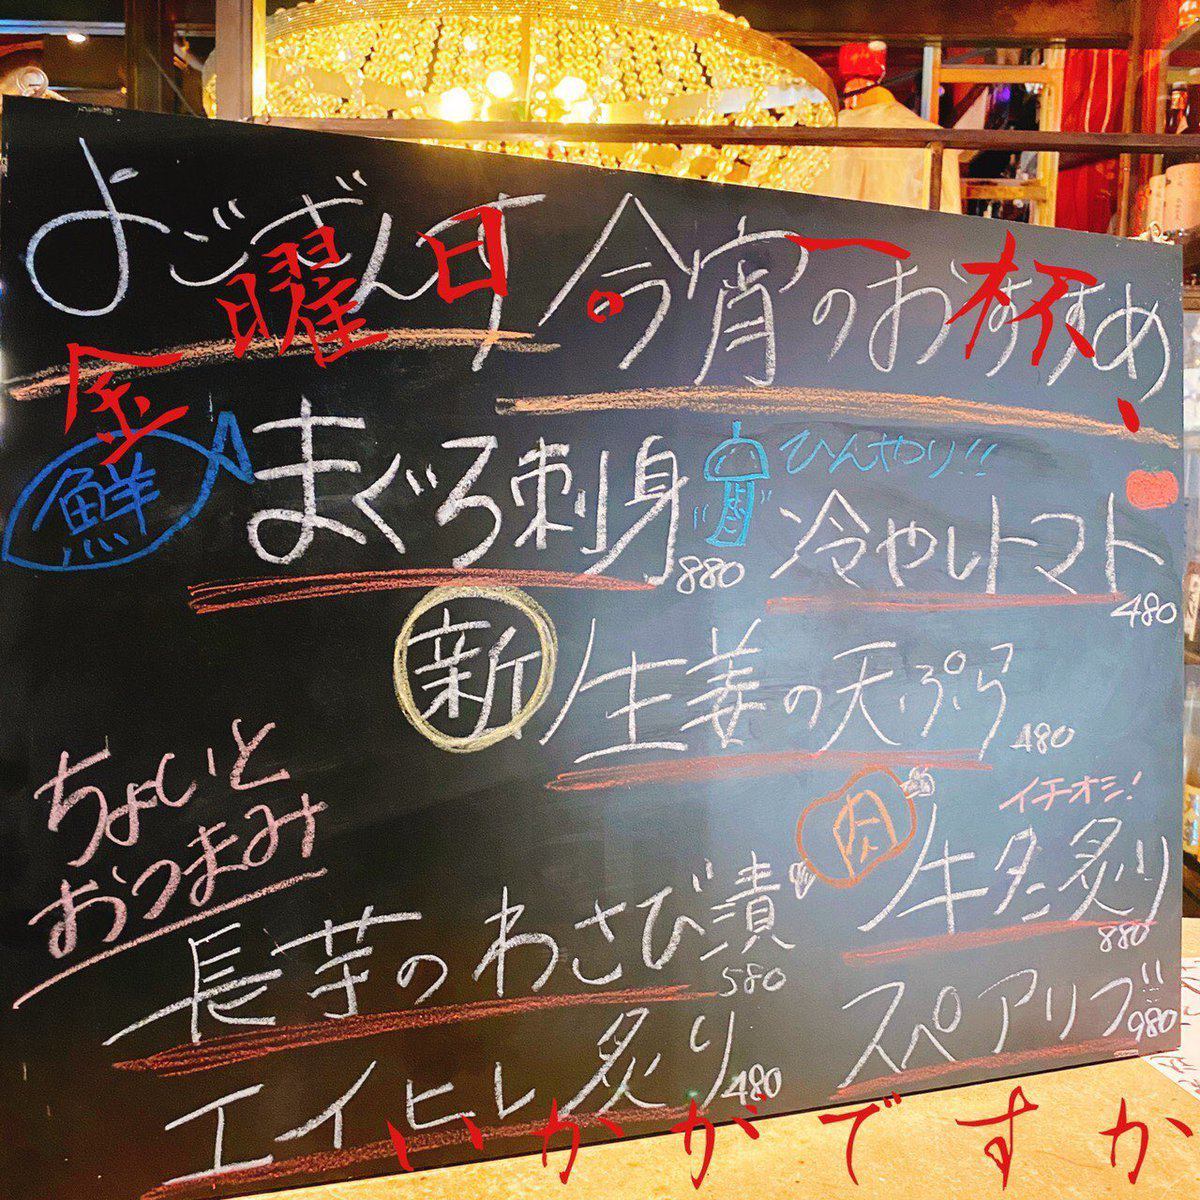 よござんす 今宵のおすすめ
金曜日。一杯、
鮮 まぐろ刺身 880
ひんやり!!
冷やしトマト 480
新生姜の天ぷら 480
ちょいと
おつまみ
肉 イチオシ!
牛タン炙り 880
長芋のわさび漬 580
スペアリブ 980
エイヒレ炙り 480
いかがですか